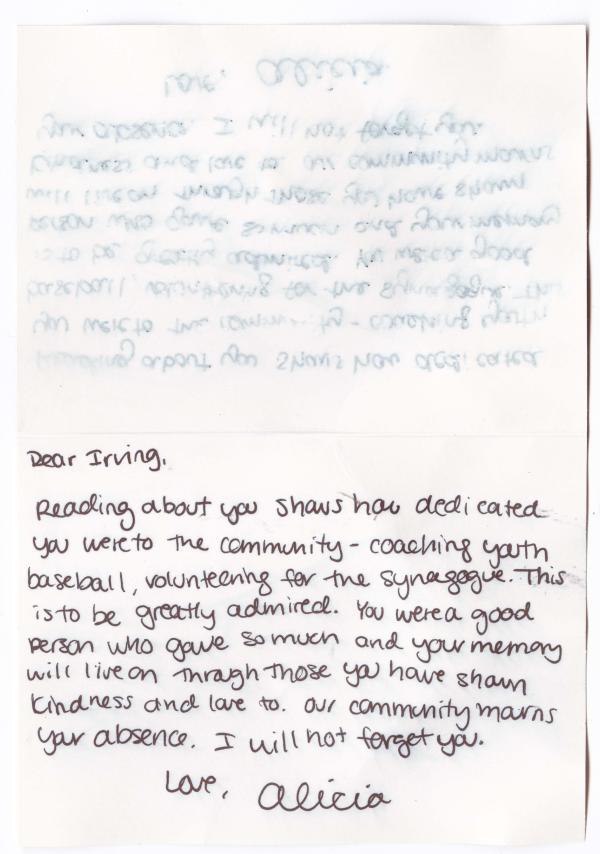 Dear Irving,
Reading about you shows how dedicated
you were to the community - coaching youth
baseball, volunteering for the synagogue. This
is to be greatly admired. You were a good
person who gave so much and your memory
will live on through those you have shown
kindness and love to. Our community mourns
your absence. I will not forget you.
Love, Alicia